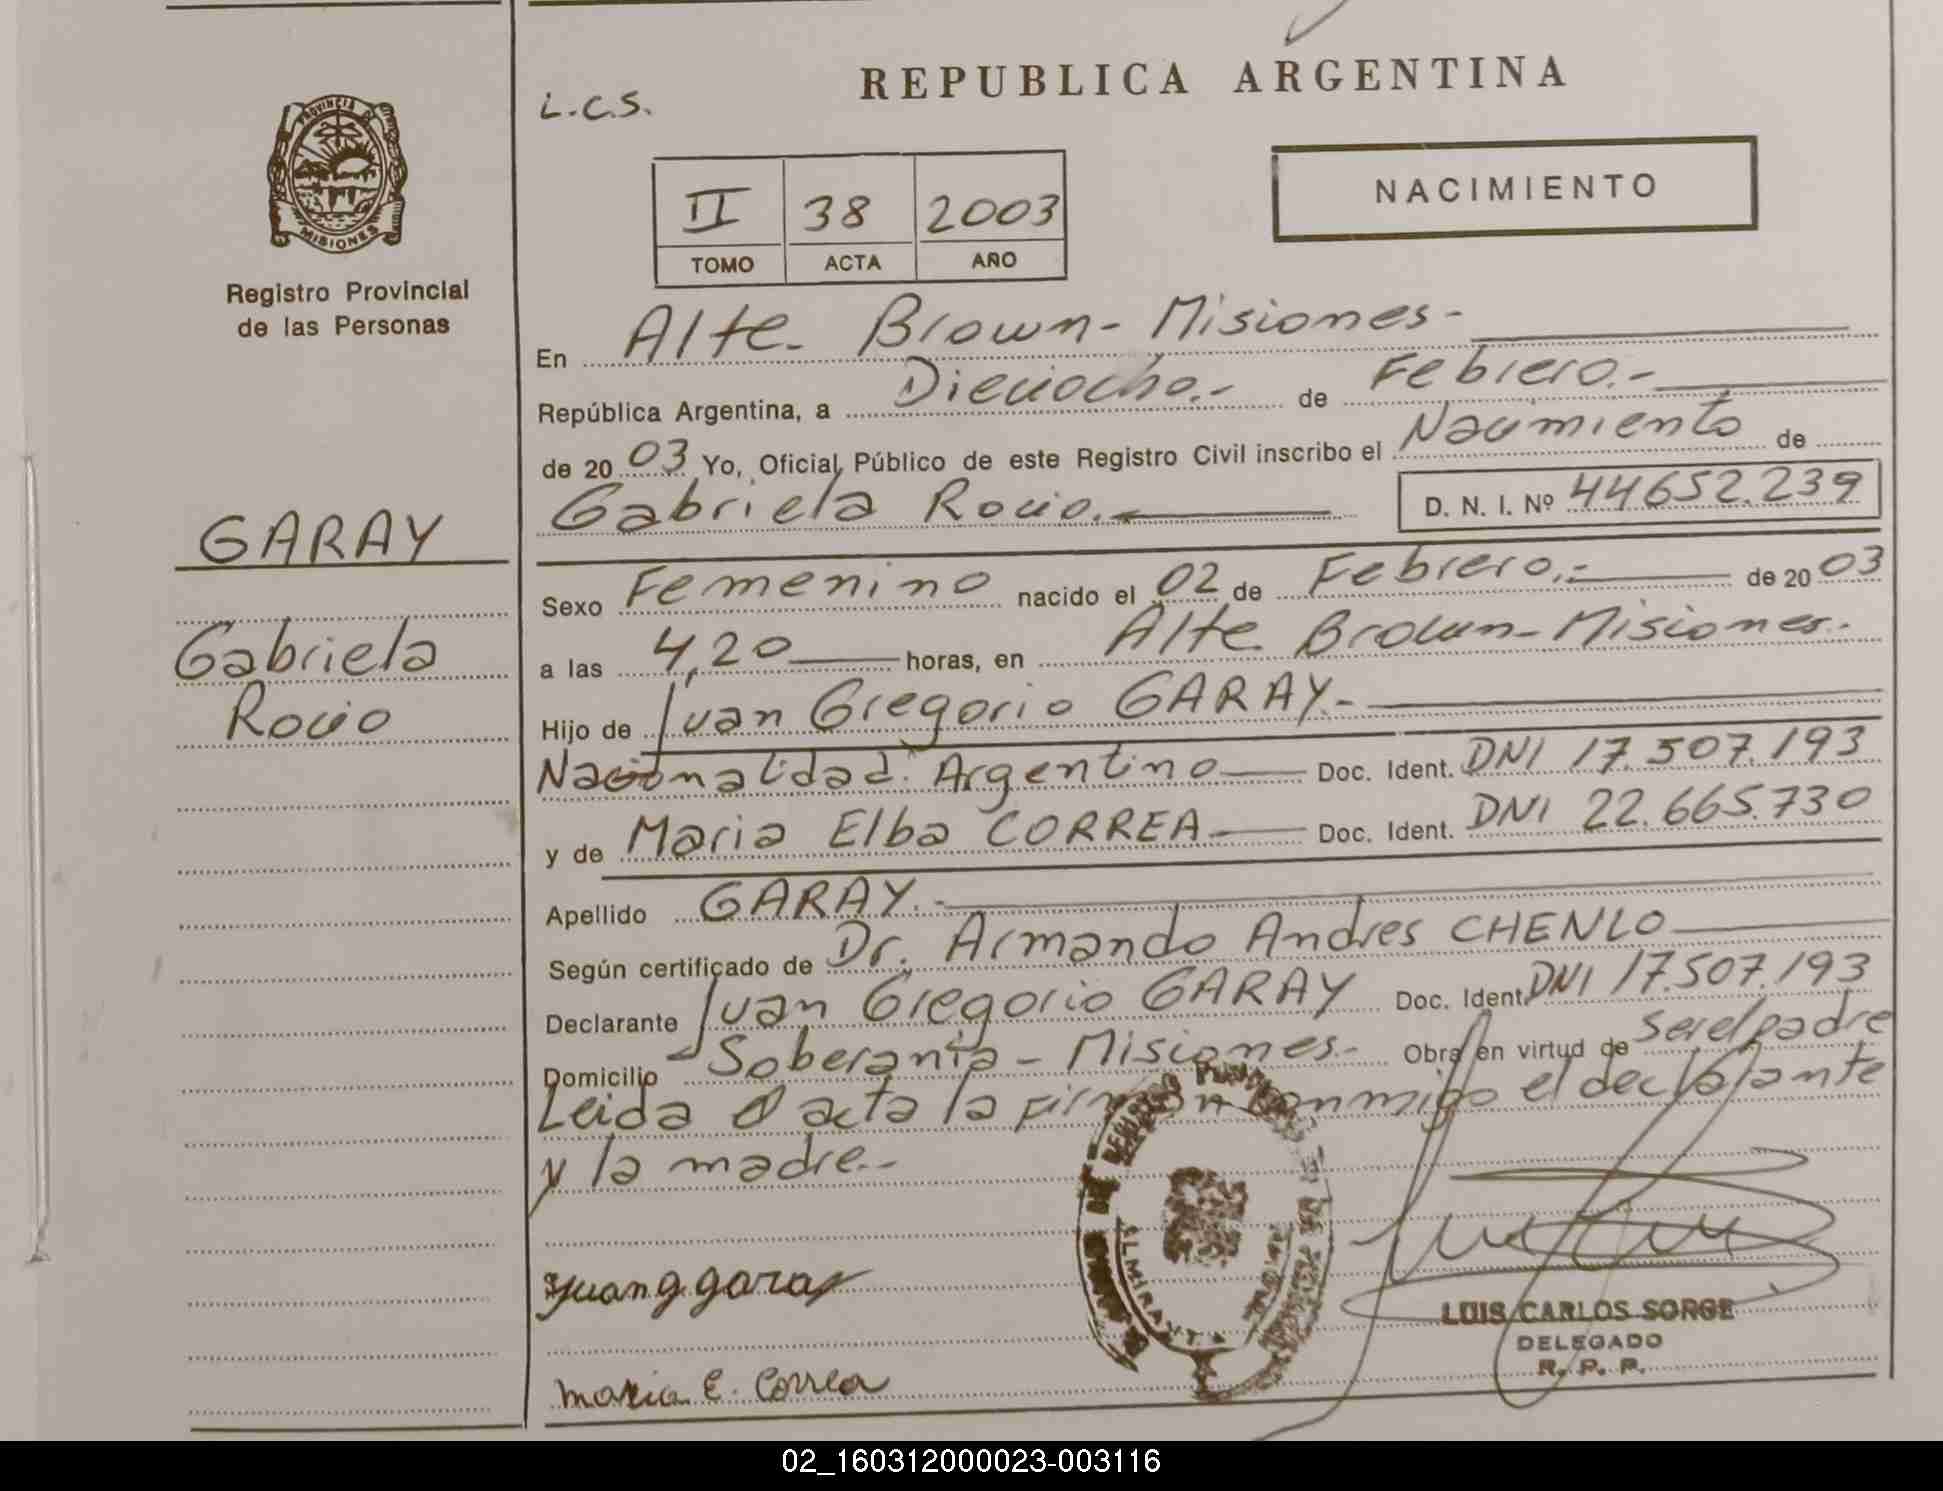 REPUBLICA ARGENTINA
L.C.S.
PROVINCIA DE
MISIONES
Registro Provincial
de las Personas
II 38 2003
TOMO ACTA AÑO
NACIMIENTO
En Alte. Brown - Misiones -
República Argentina, a Dieciocho.- de Febrero.-
de 2003 Yo, Oficial Público de este Registro Civil inscribo el Nacimiento de
Gabriela Rocio. D. N. I. Nº 44652.239
GARAY
Gabriela
Rocio
Sexo Femenino nacido el 02 de Febrero.- de 2003
a las 4,20 horas, en Alte Brown - Misiones.-
Hijo de Juan Gregorio GARAY.-
Nacionalidad: Argentino Doc. Ident. DNI 17.507.193
y de Maria Elba CORREA Doc. Ident. DNI 22.665.730
Apellido GARAY.-
Según certificado de Dr. Armando Andres CHENLO
Declarante Juan Gregorio GARAY Doc. Ident. DNI 17.507.193
Domicilio Soberania - Misiones.- Obra en virtud de ser el padre
Leida el acta la firman conmigo el declarante
y la madre.-
Juan g. garay
maria E. Correa
LUIS CARLOS SORGE
DELEGADO
R. P. P.
02_160312000023-003116